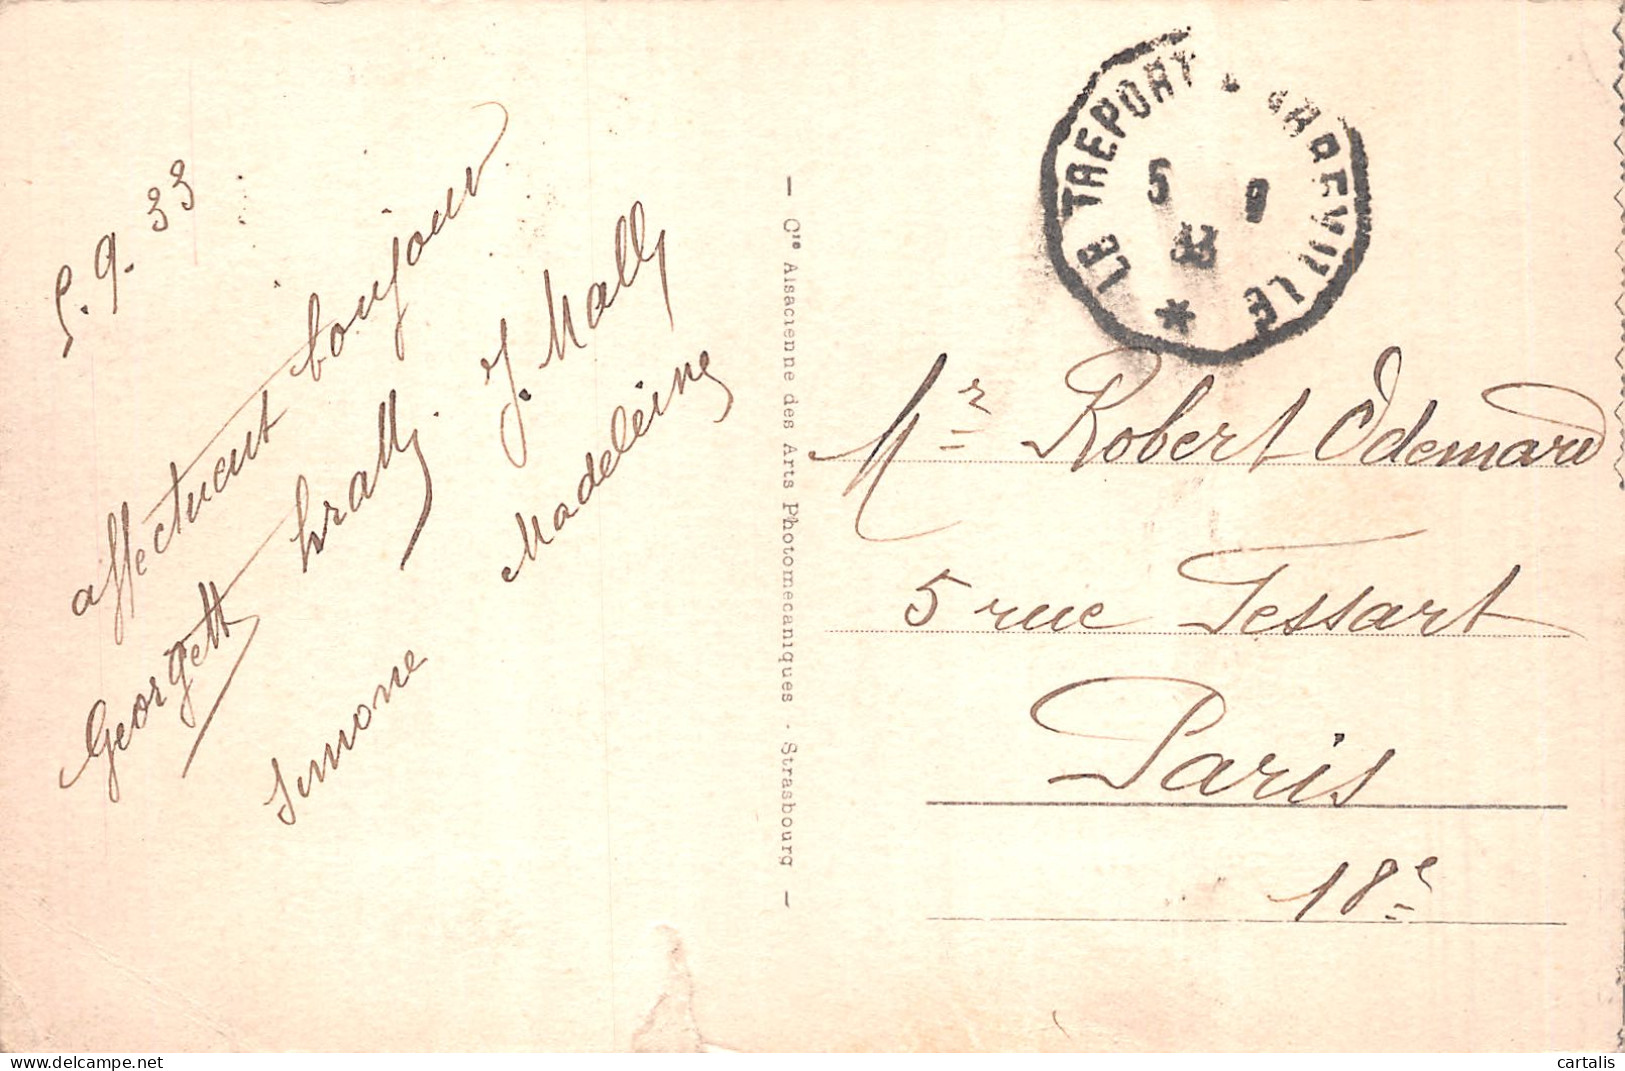 5. 9. 33
affectueux bonjour
Georgette
J. Mally
Simone
Madeleine
— Cie Alsacienne des Arts Photomécaniques - Strasbourg —
LE TREPORT A ABBEVILLE
5 9
33
Mr Robert Odemard
5 rue Tessart
Paris
18e
https://www.delcampe.net
cartalis